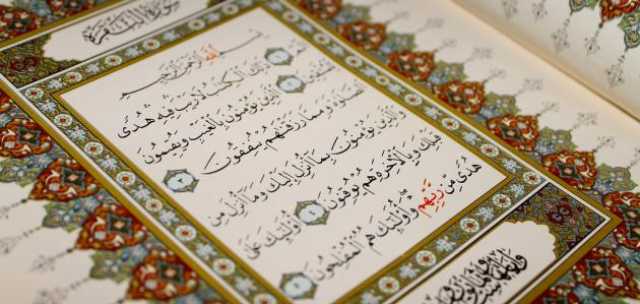 سُورَةُ البَقَرَةِ
بِسْمِ اللَّهِ الرَّحْمَٰنِ الرَّحِيمِ
الٓمٓ ۝١ ذَٰلِكَ الْكِتَابُ لَا رَيْبَ فِيهِ هُدًى
لِلْمُتَّقِينَ ۝٢ الَّذِينَ يُؤْمِنُونَ بِالْغَيْبِ وَيُقِيمُونَ
الصَّلَوٰةَ وَمِمَّا رَزَقْنَٰهُمْ يُنْفِقُونَ ۝٣
وَالَّذِينَ يُؤْمِنُونَ بِمَا أُنْزِلَ إِلَيْكَ وَمَا أُنْزِلَ مِنْ
قَبْلِكَ وَبِالْآخِرَةِ هُمْ يُوقِنُونَ ۝٤ أُولَٰئِكَ عَلَىٰ
هُدًى مِنْ رَبِّهِمْ وَأُولَٰئِكَ هُمُ الْمُفْلِحُونَ ۝٥